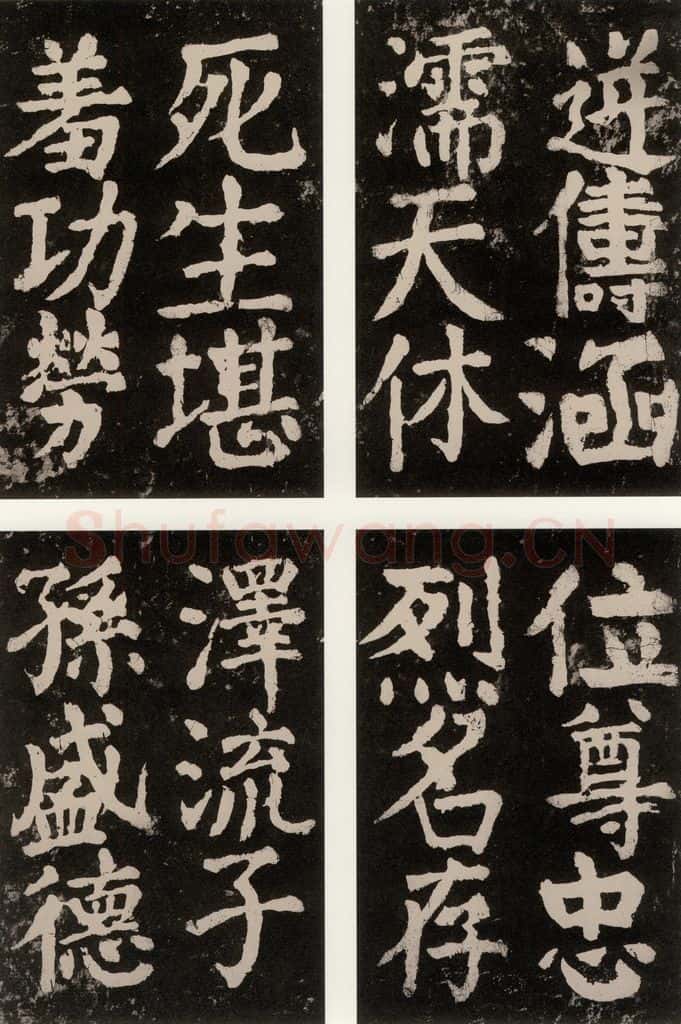 逆儔涵
濡天休
死生堪
羞功勞
位尊忠
烈名存
澤流子
孫盛德
Shufawang.CN